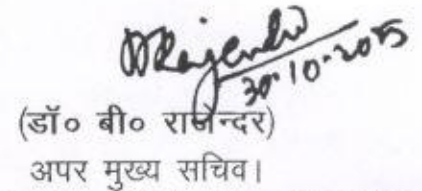 BRajendr
30.10.2025
(डॉ० बी० राजेन्दर)
अपर मुख्य सचिव।